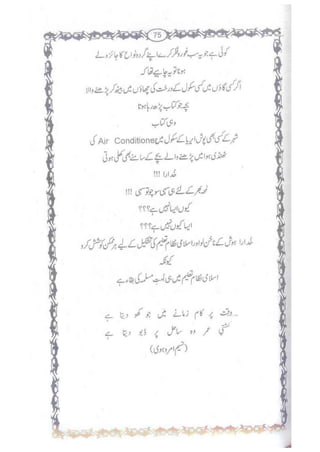 75
کوئی ہے جو یہ سب غور و فکر کرے اپنے گرد و نواح کا جائزہ لے
ہونا تو یہ چاہیے تھا کہ
اگر کسی گاؤں میں کسی سکول کے درخت کی چھاؤں میں بیٹھ کر پڑھنے والا
بچہ جو کتاب پڑھ رہا ہوتا
وہی کتاب
شہر کے کسی بھی پوش ایریا کے سکول میں Air Conditioner کی
ٹھنڈی ہوا میں پڑھنے والے بچے کے سامنے بھی کھلی ہوتی
خدارا !!!
لمحہ بھر کے لئے ہی سہی سوچو تو سہی !!!
کیوں ایسا نہیں ہے؟؟؟
ایسا کیوں نہیں ہے؟؟؟
خدارا ہوش کے ناخن لو اور اسلامی نظام تعلیم کی تشکیل کے لیے ہر ممکن کوشش کرو
کیونکہ
اسلامی نظام تعلیم میں ہی امت مسلمہ کی بقاء ہے
وقت پر کام زمانے میں جو کھو دیتا ہے
کشتی عمر وہ ساحل پر ڈبو دیتا ہے
(نسیم امروہوی)